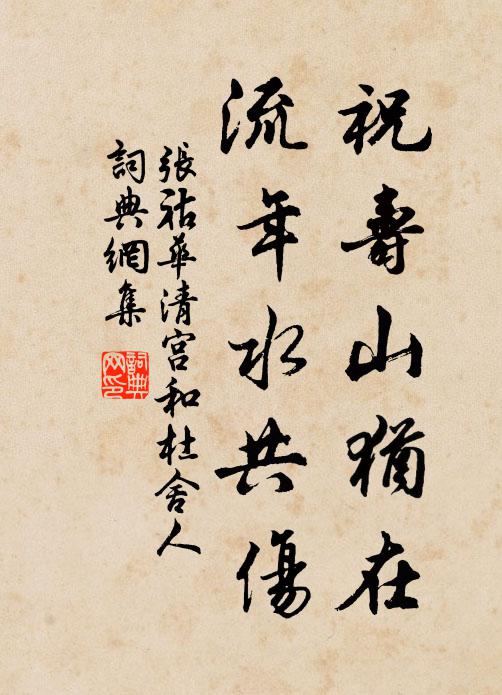 祝壽山猶在
流年水共傷
張祜華清宮和杜舍人
詞典網集
詞典
网印